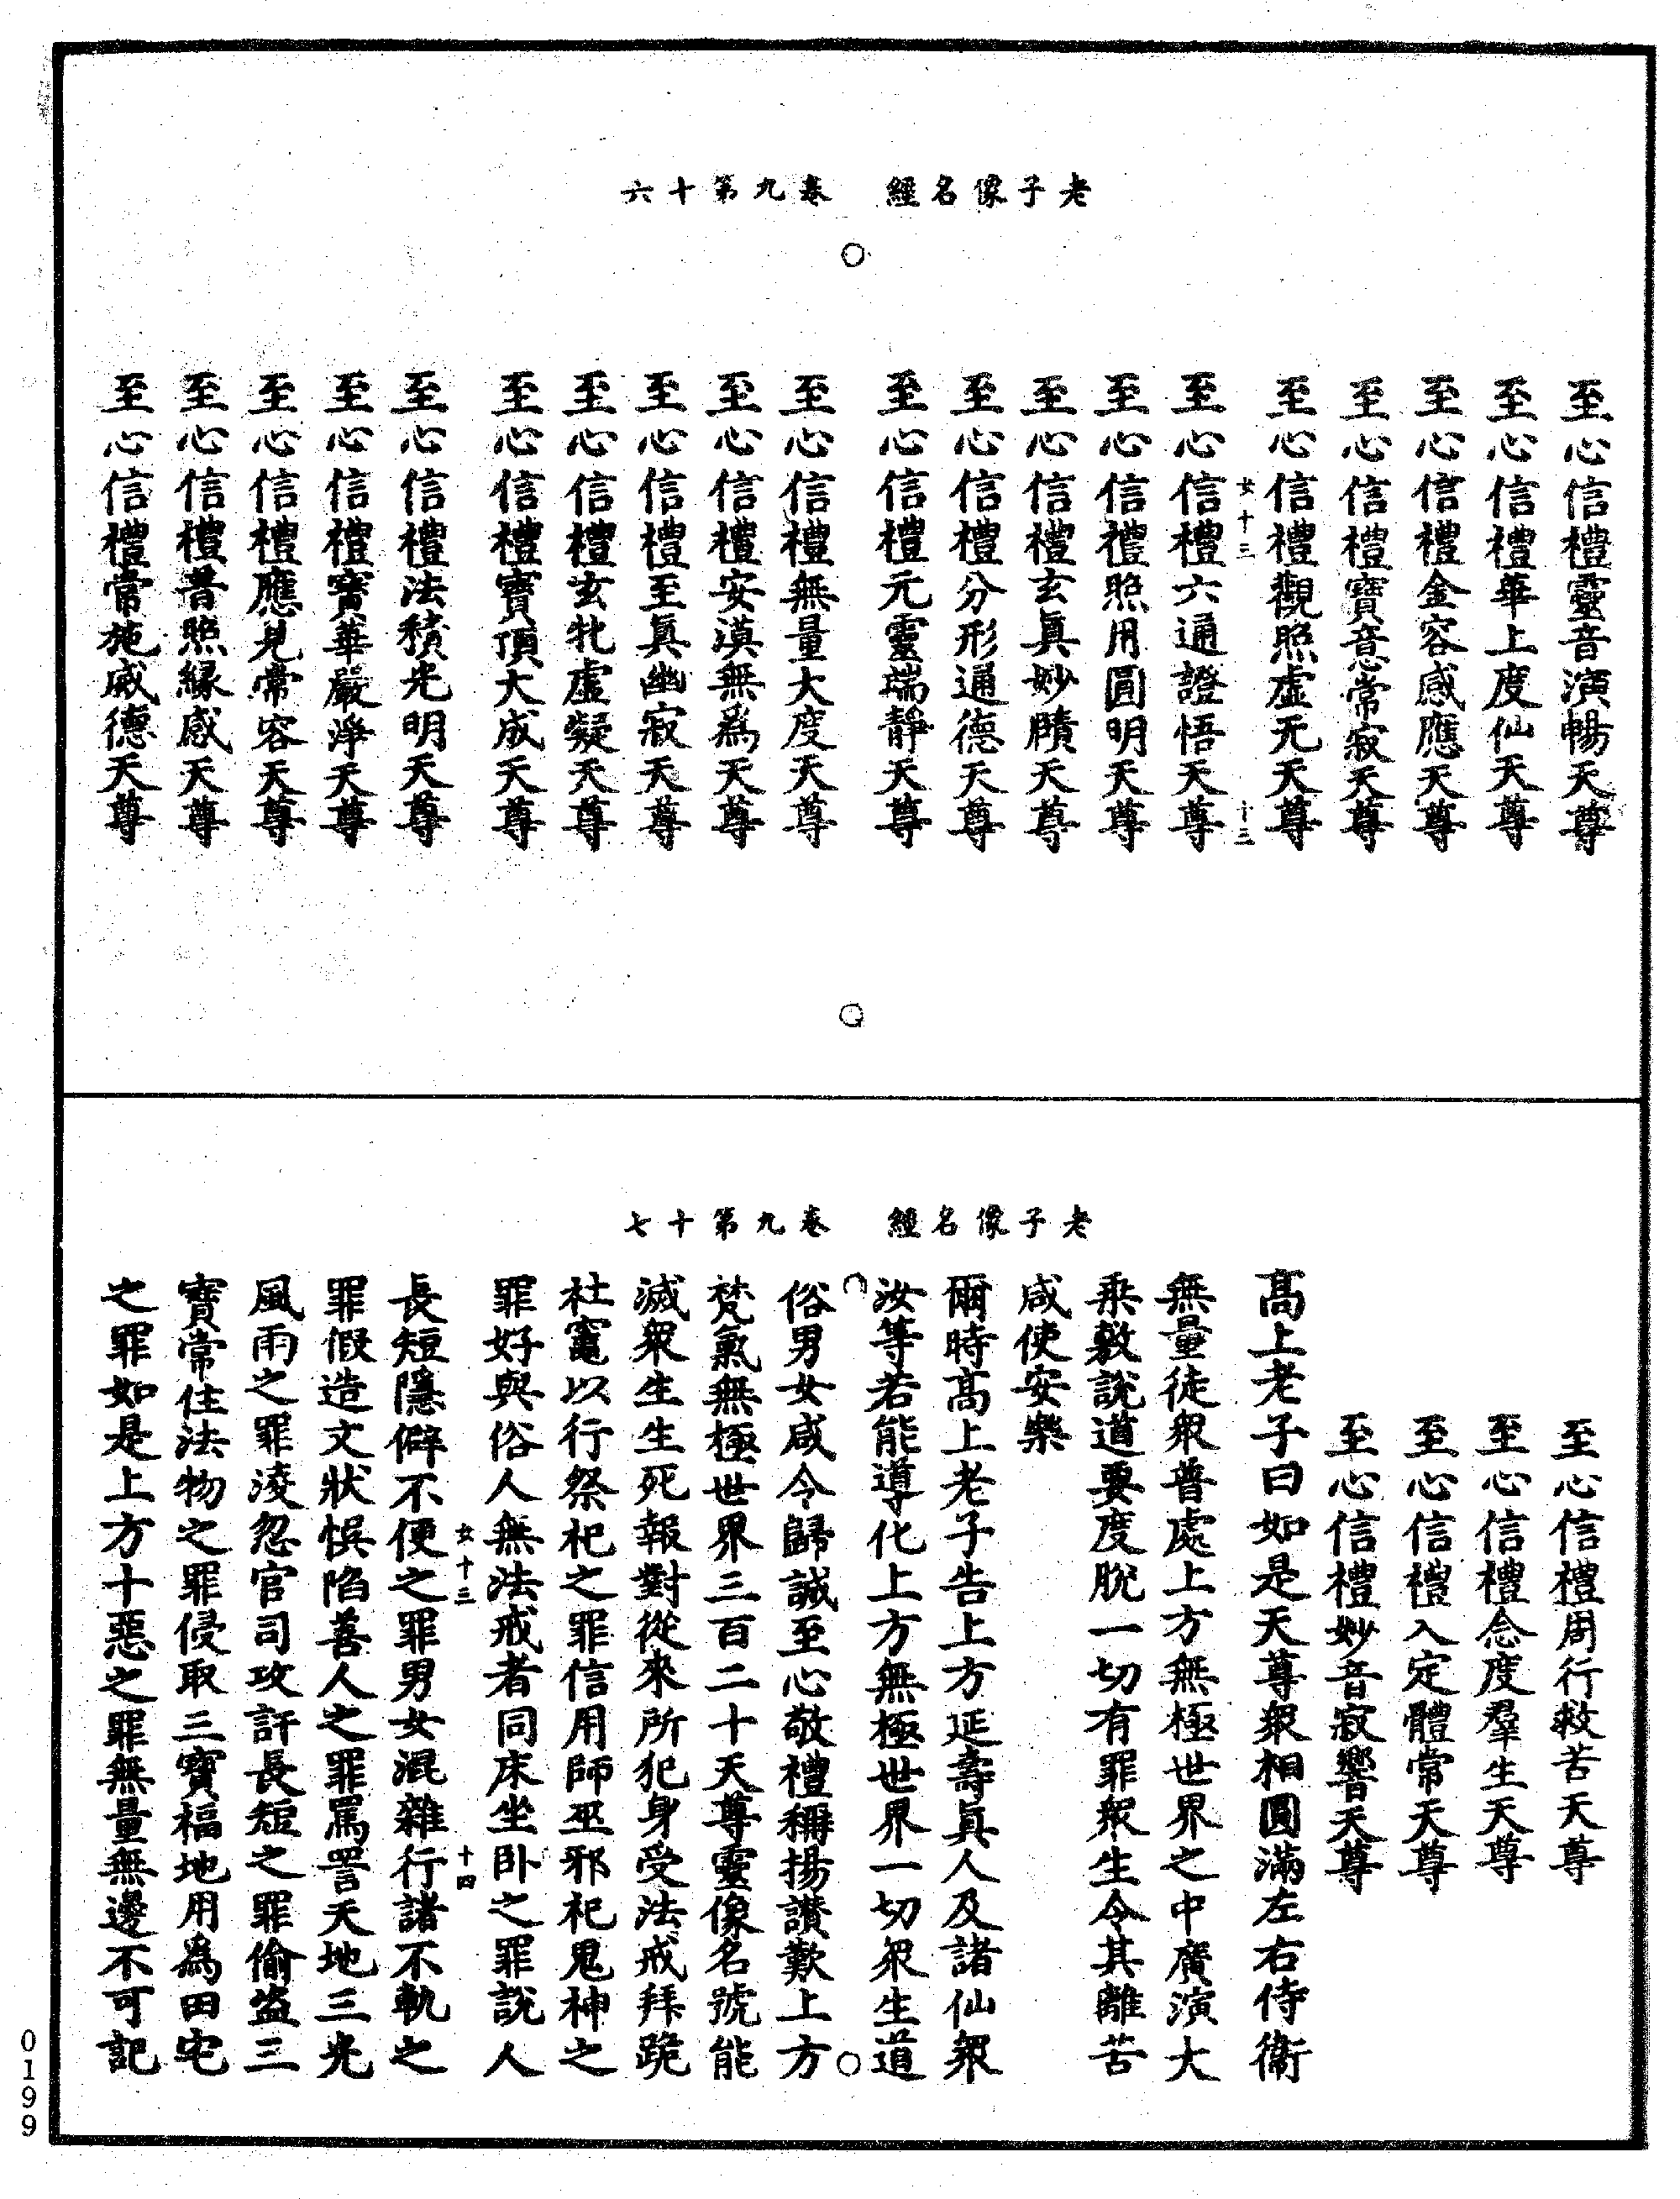 老子像名經　卷九第十六
至心信禮靈音演暢天尊
至心信禮華上度仙天尊
至心信禮金容感應天尊
至心信禮寶意常寂天尊
至心信禮觀照虛无天尊
女十三　十三
至心信禮六通證悟天尊
至心信禮照用圓明天尊
至心信禮玄眞妙賾天尊
至心信禮分形通德天尊
至心信禮元靈端靜天尊
至心信禮無量大度天尊
至心信禮安漠無爲天尊
至心信禮至眞幽寂天尊
至心信禮玄牝虛凝天尊
至心信禮寶頂大成天尊
至心信禮法積光明天尊
至心信禮寶華嚴淨天尊
至心信禮應見常容天尊
至心信禮普照緣感天尊
至心信禮常施威德天尊
老子像名經　卷九第十七
至心信禮周行救苦天尊
至心信禮念度羣生天尊
至心信禮入定體常天尊
至心信禮妙音寂響天尊
高上老子曰如是天尊衆相圓滿左右侍衞
無量徒衆普處上方無極世界之中廣演大
乘敷說道要度脫一切有罪衆生令其離苦
咸使安樂
爾時高上老子告上方延壽眞人及諸仙衆
汝等若能導化上方無極世界一切衆生道
俗男女咸令歸誠至心敬禮稱揚讚歎上方
梵炁無極世界三百二十天尊靈像名號能
滅衆生生死報對從來所犯身受法戒拜跪
社竈以行祭祀之罪信用師巫邪祀鬼神之
罪好與俗人無法戒者同床坐卧之罪說人
女十三　十四
長短隱僻不便之罪男女混雜行諸不軌之
罪假造文狀悞陷善人之罪罵詈天地三光
風雨之罪淩忽官司攻訐長短之罪偷盜三
寶常住法物之罪侵取三寶福地用爲田宅
之罪如是上方十惡之罪無量無邊不可記
0199